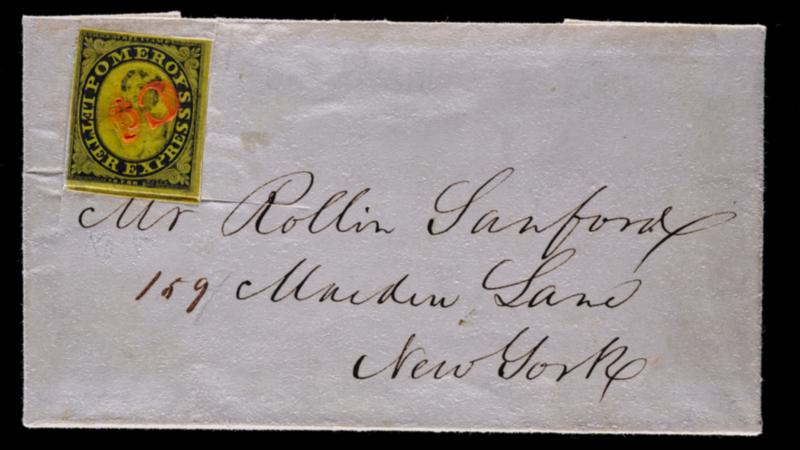 POMEROYS
LETTER EXPRESS
Mr Rollin Sanford
159 Maiden Lane
New York